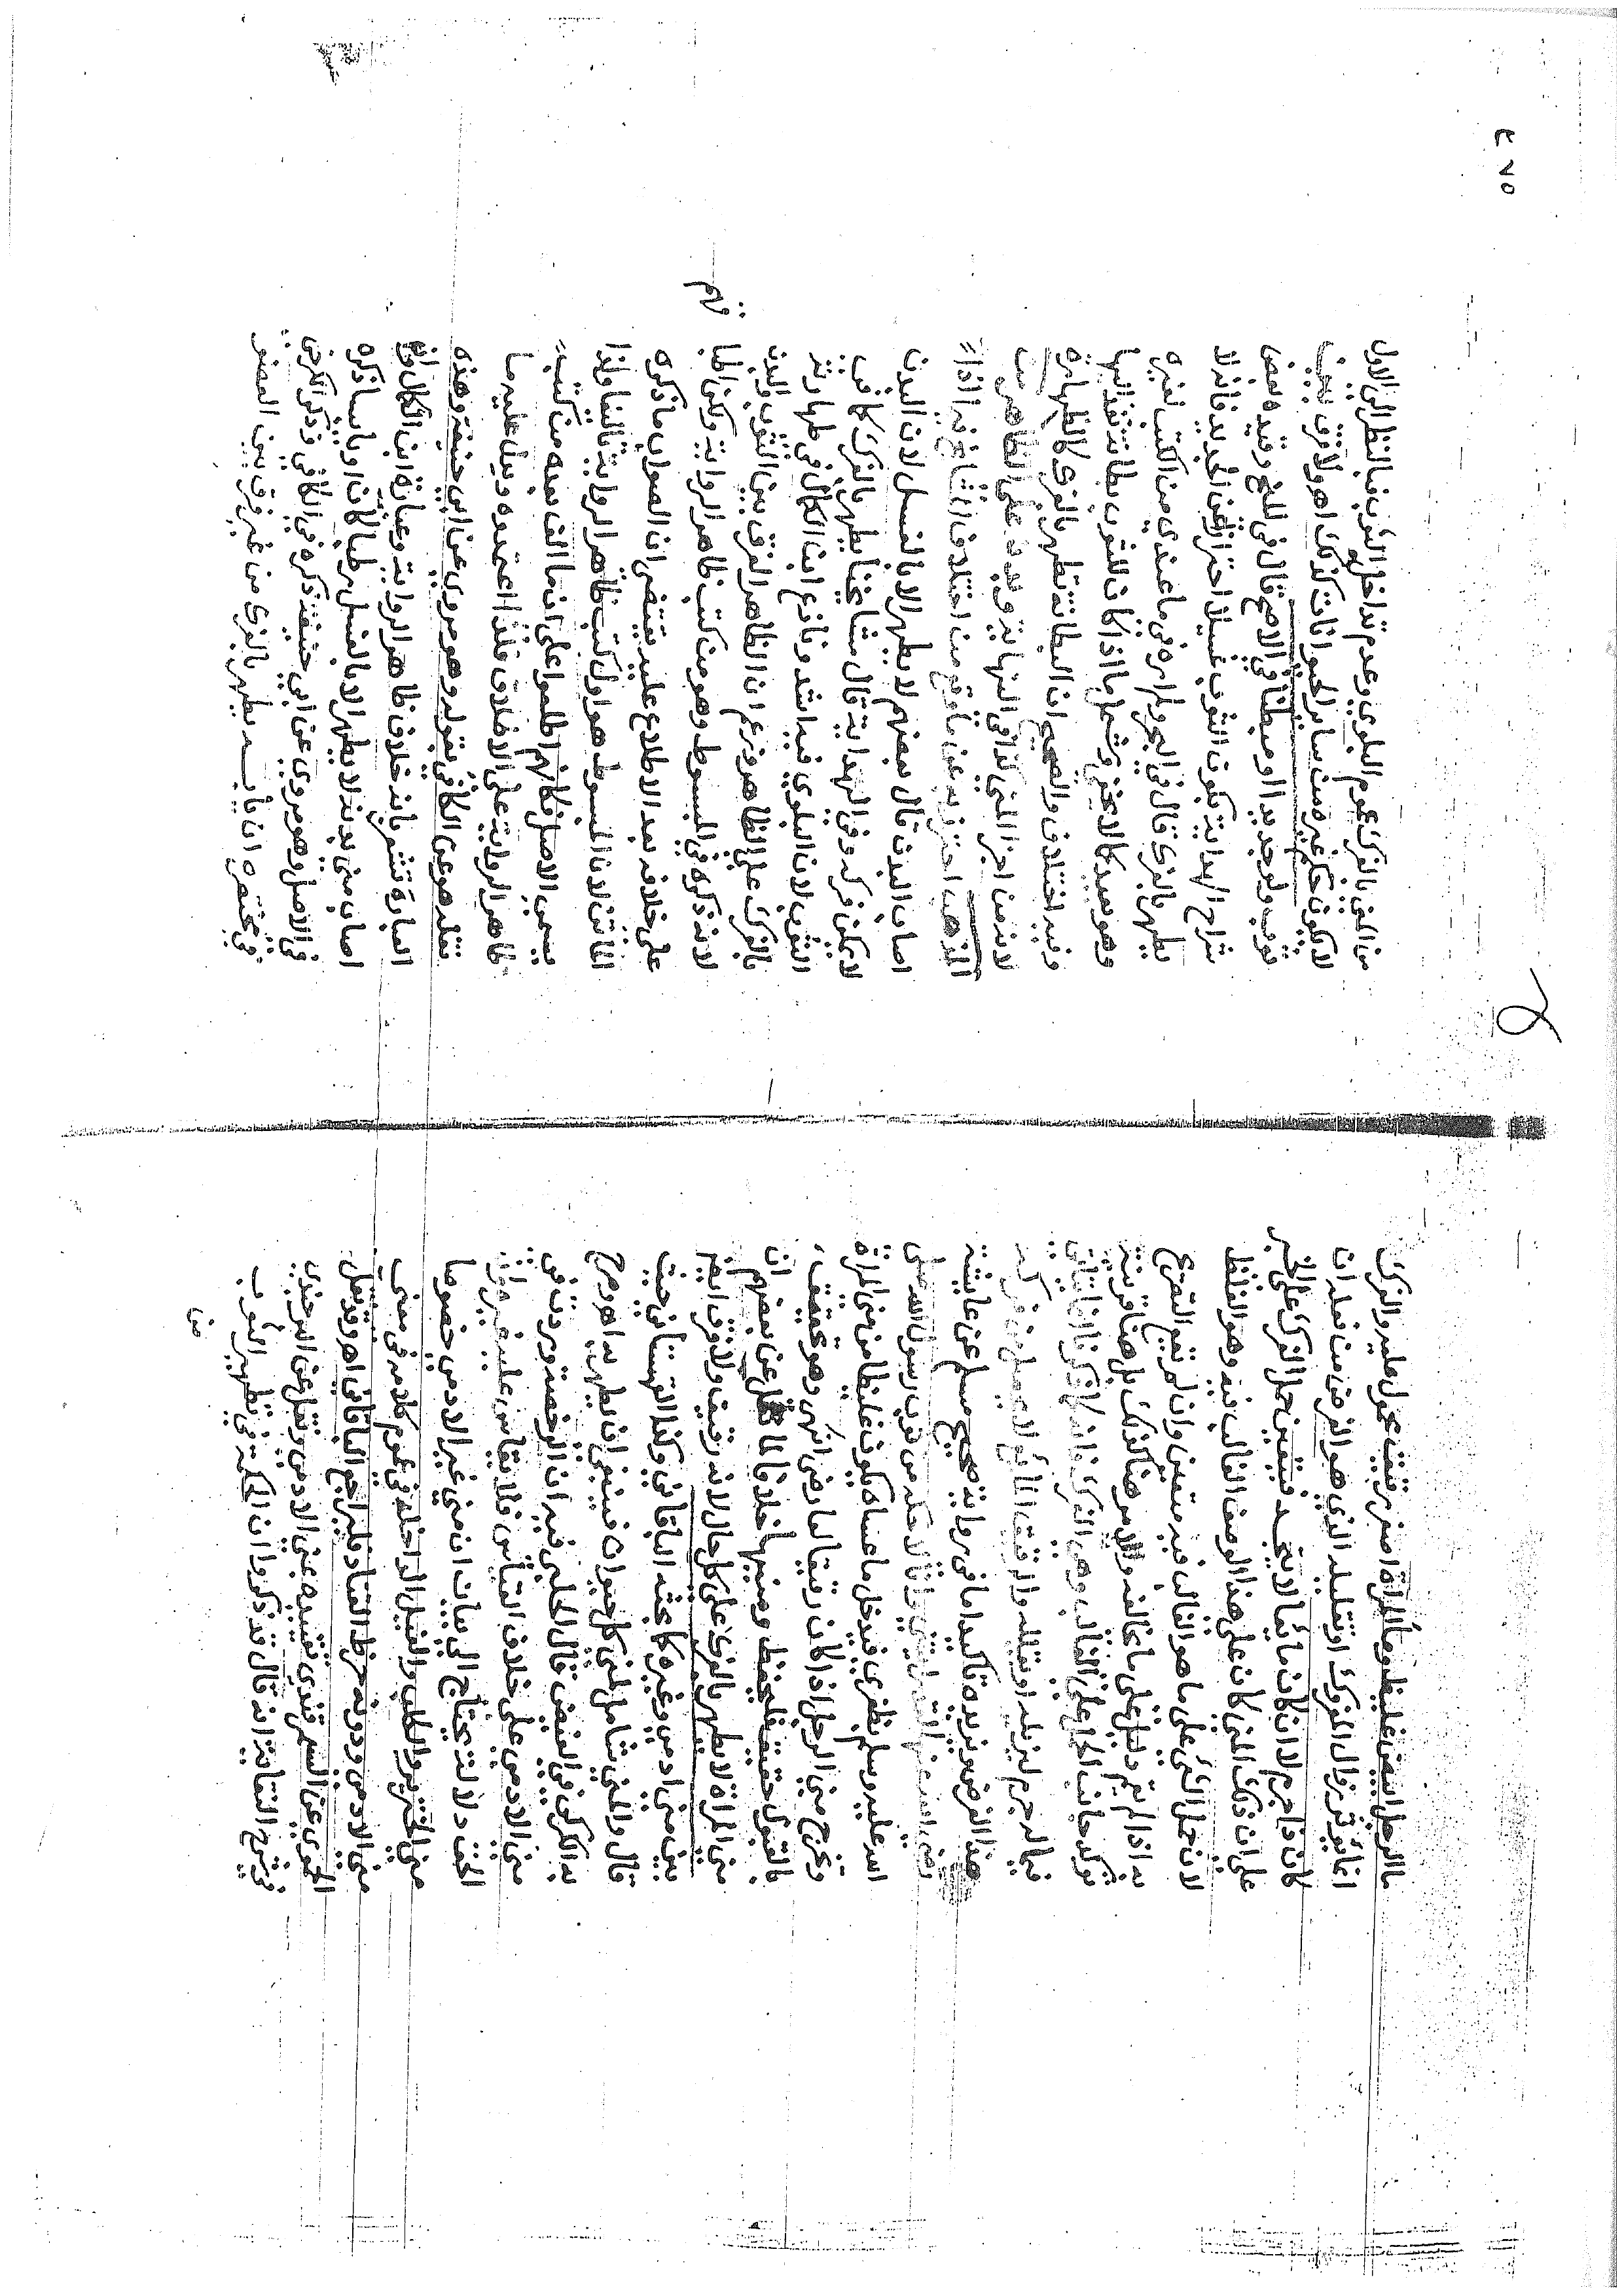 ماالرجل ابيض غليظ وماء المراة اصفر رقيق محمول عليه والفرك
انما يوثر زوال المفروك او تقليله الذي هو الغرض من فعله ان
كان ذا جرم لا ان كان مائعا لا يتجسد فيتعين حمل الفرك على الخبر
على ان ذكر المني كان على هذا الوصف الغالب فيه وهو الغلظ
لان حمل الشي على ما هو الغالب فيه متعين وان لم تقع التصريح
به اذا لم يقم دليل على ما يخالفه والامر هنا كذلك بل هنا قرينة
توكد جانب الحمل على الغالب وهي الفرك فانه كما ذكرنا انما يتاتى
فيما له جرم ليزيله او يقلله والرقيق المائع لا يحصل من فركه
هذا الغرض ويزيده تاكيدا ما في رواية صحيح مسلم عن عايشة
رضي الله عنها لقد رايتني وانا لاحكه من ثوب رسول الله صلى
الله عليه وسلم بظفري فيدخل ما عساه يكون غليظا من مني المراة
ويخرج مني الرجل اذا كان رقيقا لعارض انتهى وهو تحقيق
بالقبول حقيق فليحفظ ومنيها خلافا لما نقل عن بعضهم ان
مني المراة لا يطهر بالفرك على كل حال لانه رقيق ولا فرق ايضا
بين مني ادمي وغيره كما بحثه الباقاني وكذا القهستاني حيث
قال والمني شامل لمني كل حيوان فينبغي ان يطهر به اهـ وصرح
به الكركي في الفيض قال الحلبي فيه ان الرخصة وردت في
مني الادمي على خلاف القياس فلا يقاس عليه غيره فان
الحق دلالة يحتاج الى بيان ان مني غير الادمي خصوصا
مني الخنزير والكلب والفيل الداخلة في عموم كلامه في معنى
مني الادمي ودونه خرط القتاد فليراجع الباقاني اهـ وقد نقل
الحموي عن السمرقندي تقييده بمني الادمي ونقل عن البرجندي
في شرح النقاية انه قال قد ذكروا ان الحكمة في تطهير الثوب
من
من المني بالفرك عموم البلوي وعدم تداخل الثوب بالنظر الى الاول
لا يكون حكم غيره من ساير الحيوانات كذلك اهـ ولا فرق بين
ثوب ولو جديدا او مبطنا في الاصح قال في المنح وقيده بعض
شراح الهداية بكون الثوب غسيلا احترازا عن الجديد فانه لا
يطهر بالفرك قال في البحر ولم اره في ما عندي من الكتب لغيره
وهو بعيد كما لا يخفى وشمل ما اذا كان للثوب بطانة نفذ اليها
وفيه اختلاف والصحيح ان البطانة تطهر بالفرك كالظهارة
لانه من اجزا المني كذا في النهاية وبدن على الظاهر من
المذهب احترز به عن ما وقع من اختلاف المشايخ فيه اذا
اصاب البدن قال بعضهم لا يطهر الا بالغسل لان البدن
لا يمكن فركه وفي الهداية قال مشايخنا يطهر بالفرك كما في
الثوب لان البلوي فيه اشد ونازع ابن الكمال في طهارته
بالفرك على الظاهر وزعم ان الظاهر الفرق بين الثوب والبدن
لانه ذكره في المبسوط وهو من كتب ظاهر الرواية ولكن
على خلافه بعد الاطلاع عليه يقتضي ان الصواب ما ذكره
لان المبسوط هو اول كتب ظاهر الرواية تاليفا ولذا
يسمى الاصل فكانهم اطلعوا على ان ما الف بعده من كتب
ظاهر الرواية على الاطلاق فلذا اعتمدوه ويدل عليه ما
نقله هو عن الكافي بقوله وهو مروي عن ابي حنيفة وهذه
العبارة تشعر بانه خلاف ظاهر الرواية وعبارة ابن الكمال وان
اصاب مني بدنه لا يطهر الا بالغسل رطبا كان او يابسا ذكره
في الاصل وهو مروي عن ابي حنيفة ذكره في الكافي وذكر الكرخي
في مختصره ان يابسه يطهر بالفرك من غير فرق بين العضو